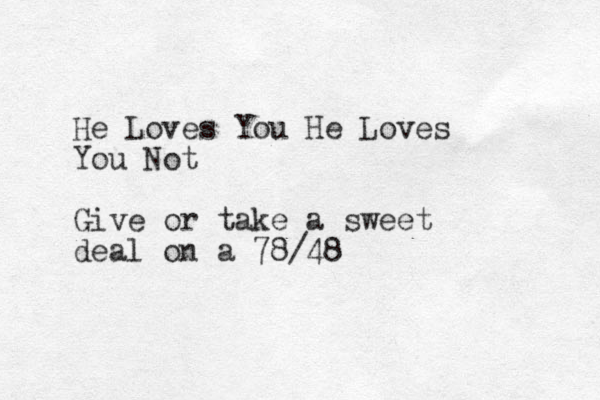 He Loves You He Loves
You Not
Give or take a sweet
deal on a 78/48